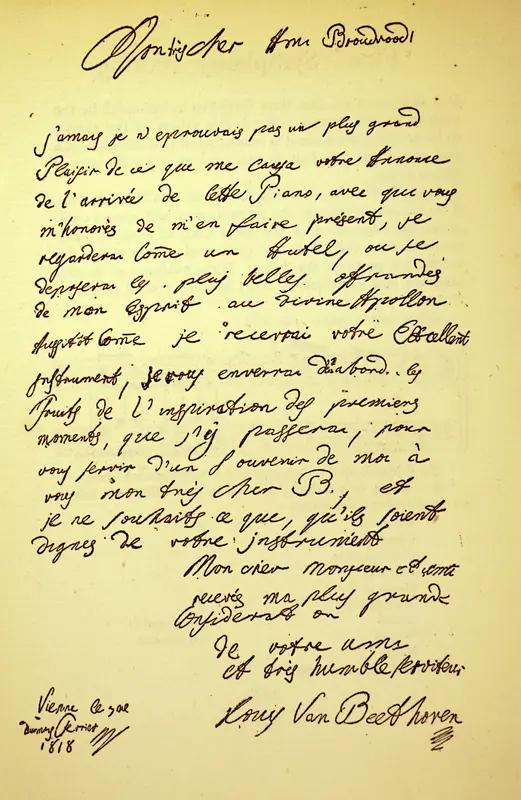 Mon très cher Ami Broadvood!
j'amais je n'eprouvais pas un plus grand
Plaisir de ce que me causa votre Annonce
de l'arrivée de Cette Piano, avec que vous
m'honorès de m'en faire présent, je
regarderai Come un Autel, ou je
deposerai les plus belles offrandes
de mon Esprit au divine Apollon
Aussitôt Come je recevrai votre Excellent
jnstrument, je vous enverrai d'abord les
Fruits de l'inspiration des premiers
moments, que j'y passerai, pour
vous servir d'un Souvenir de moi à
vous mon très cher B., et
je ne souhaits ce que, qu'ils soient
dignes de votre jnstrument
Mon cher Monsieur et ami
recevés ma plus grande
Consideration
de votre ami
et très humble serviteur
Louis Van Beethoven
Vienne le
du mois Fevrier
1818